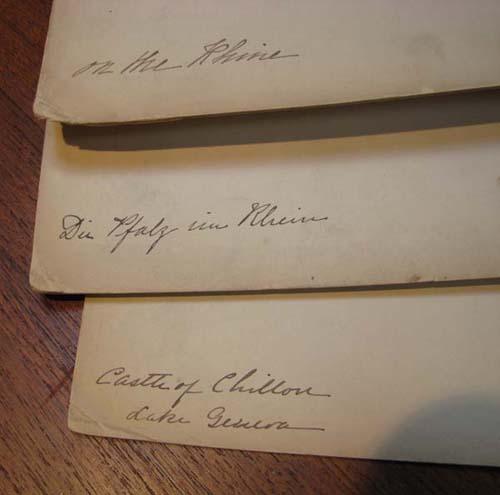 on the Rhine
Die Pfalz im Rhein
Castle of Chillon
Lake Geneva